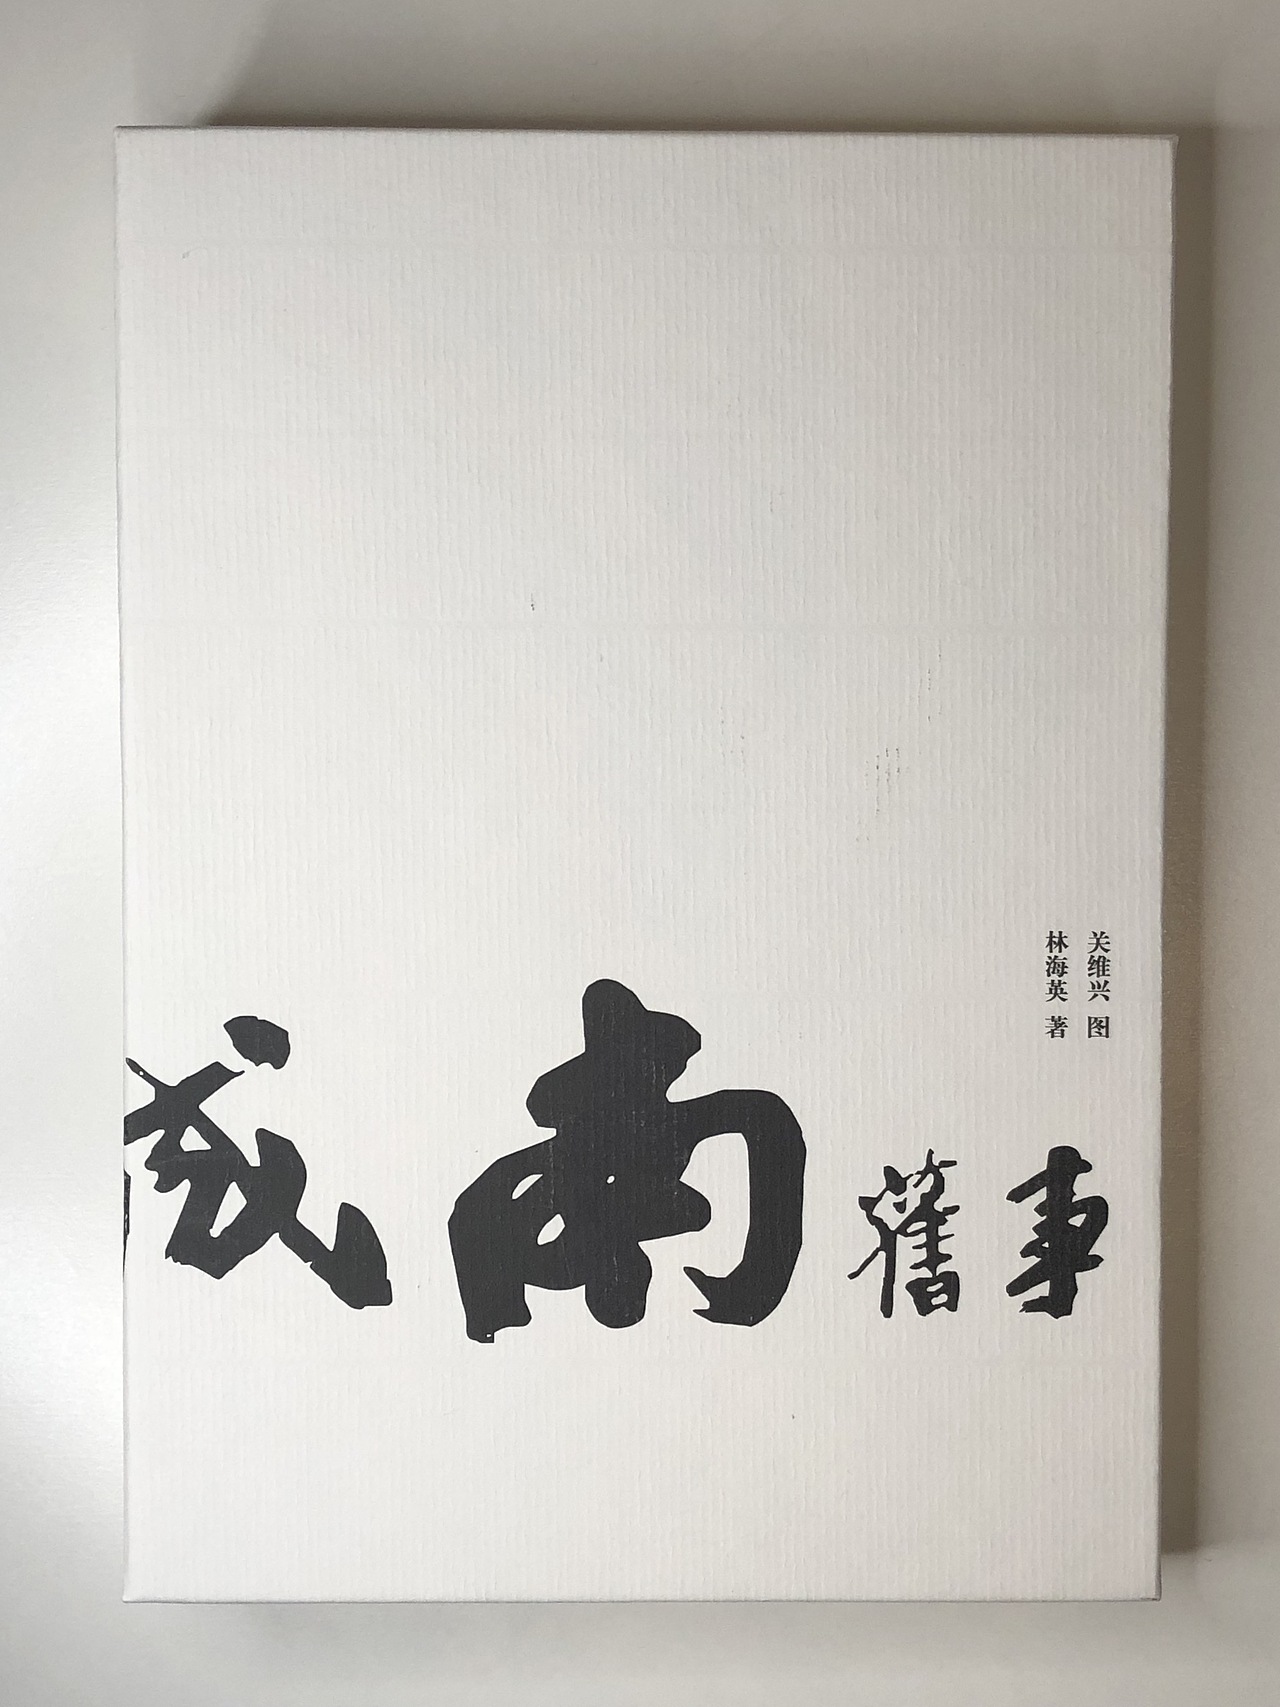 关维兴 图
林海英 著
城南舊事